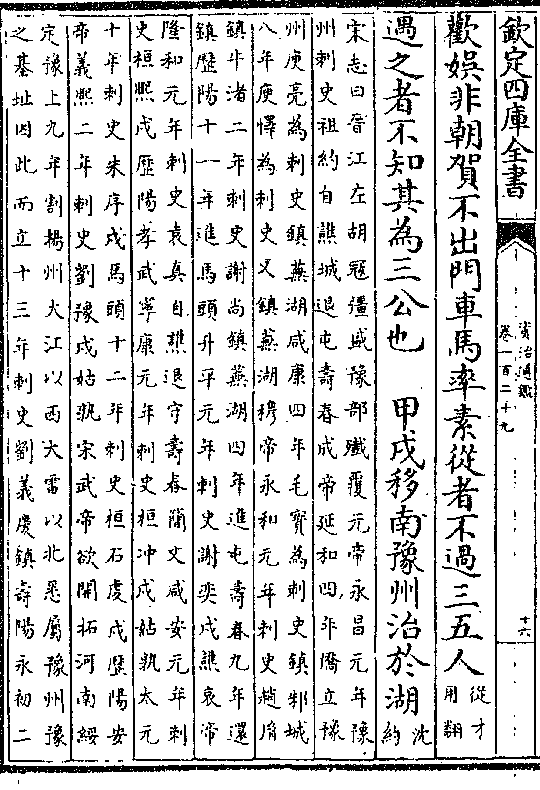 欽定四庫全書
資治通鑑
卷一百二十九
十六
歡娯非朝賀不出門車馬率素從者不過三五人從才
用翻
遇之者不知其為三公也　甲戍移南豫州治於湖沈
約
宋志曰晉江左胡冦彊盛豫部殱覆元帝永昌元年豫
州刺史祖約自譙城退屯壽春成帝延和四年僑立豫
州庾亮為刺史鎮蕪湖咸康四年毛寶為刺史鎮邾城
八年庾懌為刺史又鎮蕪湖穆帝永和元年刺史趙胤
鎮牛渚二年刺史謝尚鎮蕪湖四年進屯壽春九年還
鎮歷陽十一年進馬頭升平元年刺史謝奕戍譙哀帝
隆和元年刺史袁真自譙退守壽春簡文咸安元年刺
史桓熙戍歷陽孝武寧康元年刺史桓冲戍姑孰太元
十年刺史朱序戍馬頭十二年刺史桓石虔戍歷陽安
帝義熙二年刺史劉豫戍姑孰宋武帝欲開拓河南綏
定豫上九年割揚州大江以西大雷以北悉屬豫州豫
之基址因此而立十三年刺史劉義慶鎮壽陽永初二